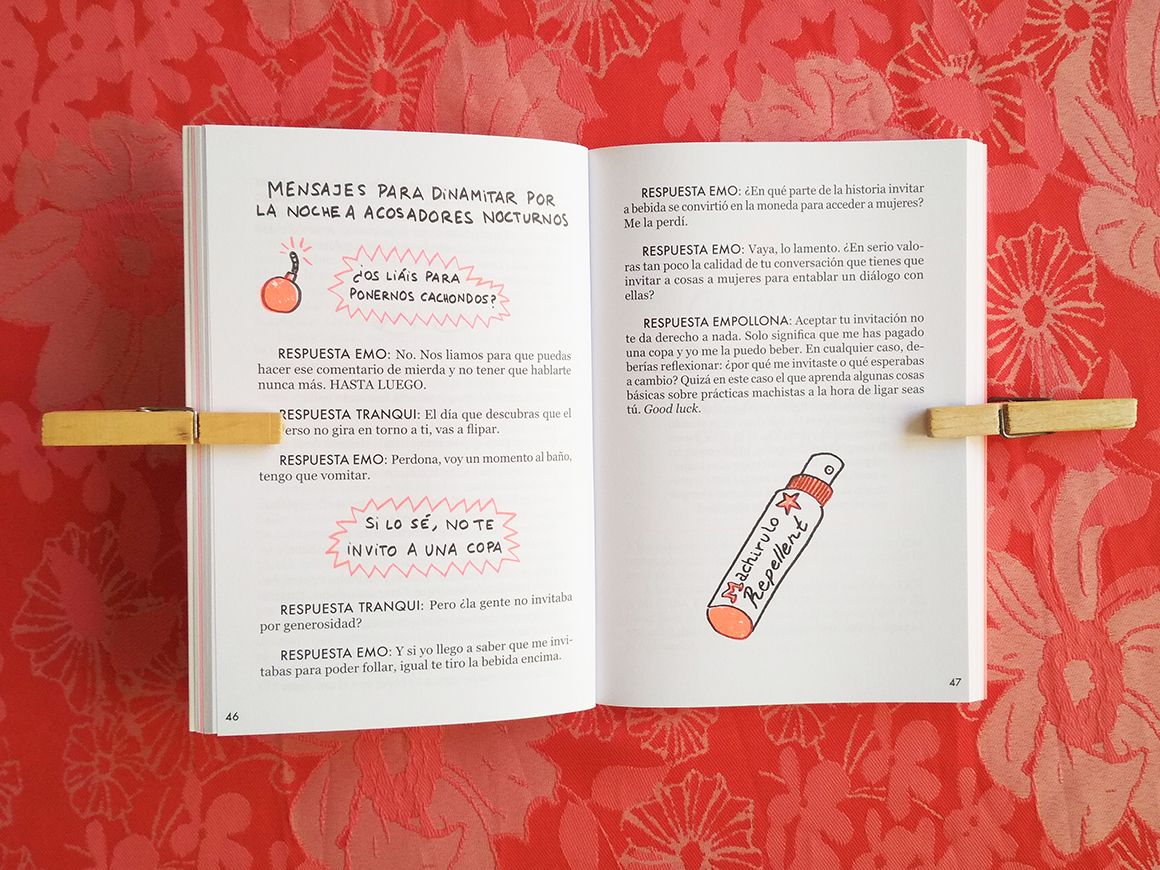 MENSAJES PARA DINAMITAR POR
LA NOCHE A ACOSADORES NOCTURNOS
¿OS LIÁIS PARA
PONERNOS CACHONDOS?
RESPUESTA EMO: No. Nos liamos para que puedas
hacer ese comentario de mierda y no tener que hablarte
nunca más. HASTA LUEGO.
RESPUESTA TRANQUI: El día que descubras que el
erso no gira en torno a ti, vas a flipar.
RESPUESTA EMO: Perdona, voy un momento al baño,
tengo que vomitar.
SI LO SÉ, NO TE
INVITO A UNA COPA
RESPUESTA TRANQUI: Pero ¿la gente no invitaba
por generosidad?
RESPUESTA EMO: Y si yo llego a saber que me invi-
tabas para poder follar, igual te tiro la bebida encima.
46
RESPUESTA EMO: ¿En qué parte de la historia invitar
a bebida se convirtió en la moneda para acceder a mujeres?
Me la perdí.
RESPUESTA EMO: Vaya, lo lamento. ¿En serio valo-
ras tan poco la calidad de tu conversación que tienes que
invitar a cosas a mujeres para entablar un diálogo con
ellas?
RESPUESTA EMPOLLONA: Aceptar tu invitación no
te da derecho a nada. Solo significa que me has pagado
una copa y yo me la puedo beber. En cualquier caso, de-
berías reflexionar: ¿por qué me invitaste o qué esperabas
a cambio? Quizá en este caso el que aprenda algunas cosas
básicas sobre prácticas machistas a la hora de ligar seas
tú. Good luck.
Machirulo
Repellent
47